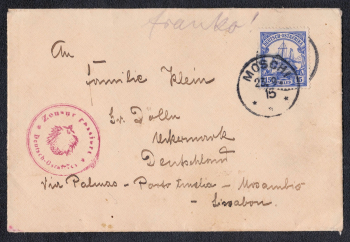 franko!
An
Familie Klein
Gr. Dölln
Uckermark
Deutschland
Via Palmas - Porto Amelia - Mozambo -
Lissabon.
MOSCHI
15
Zensur passiert